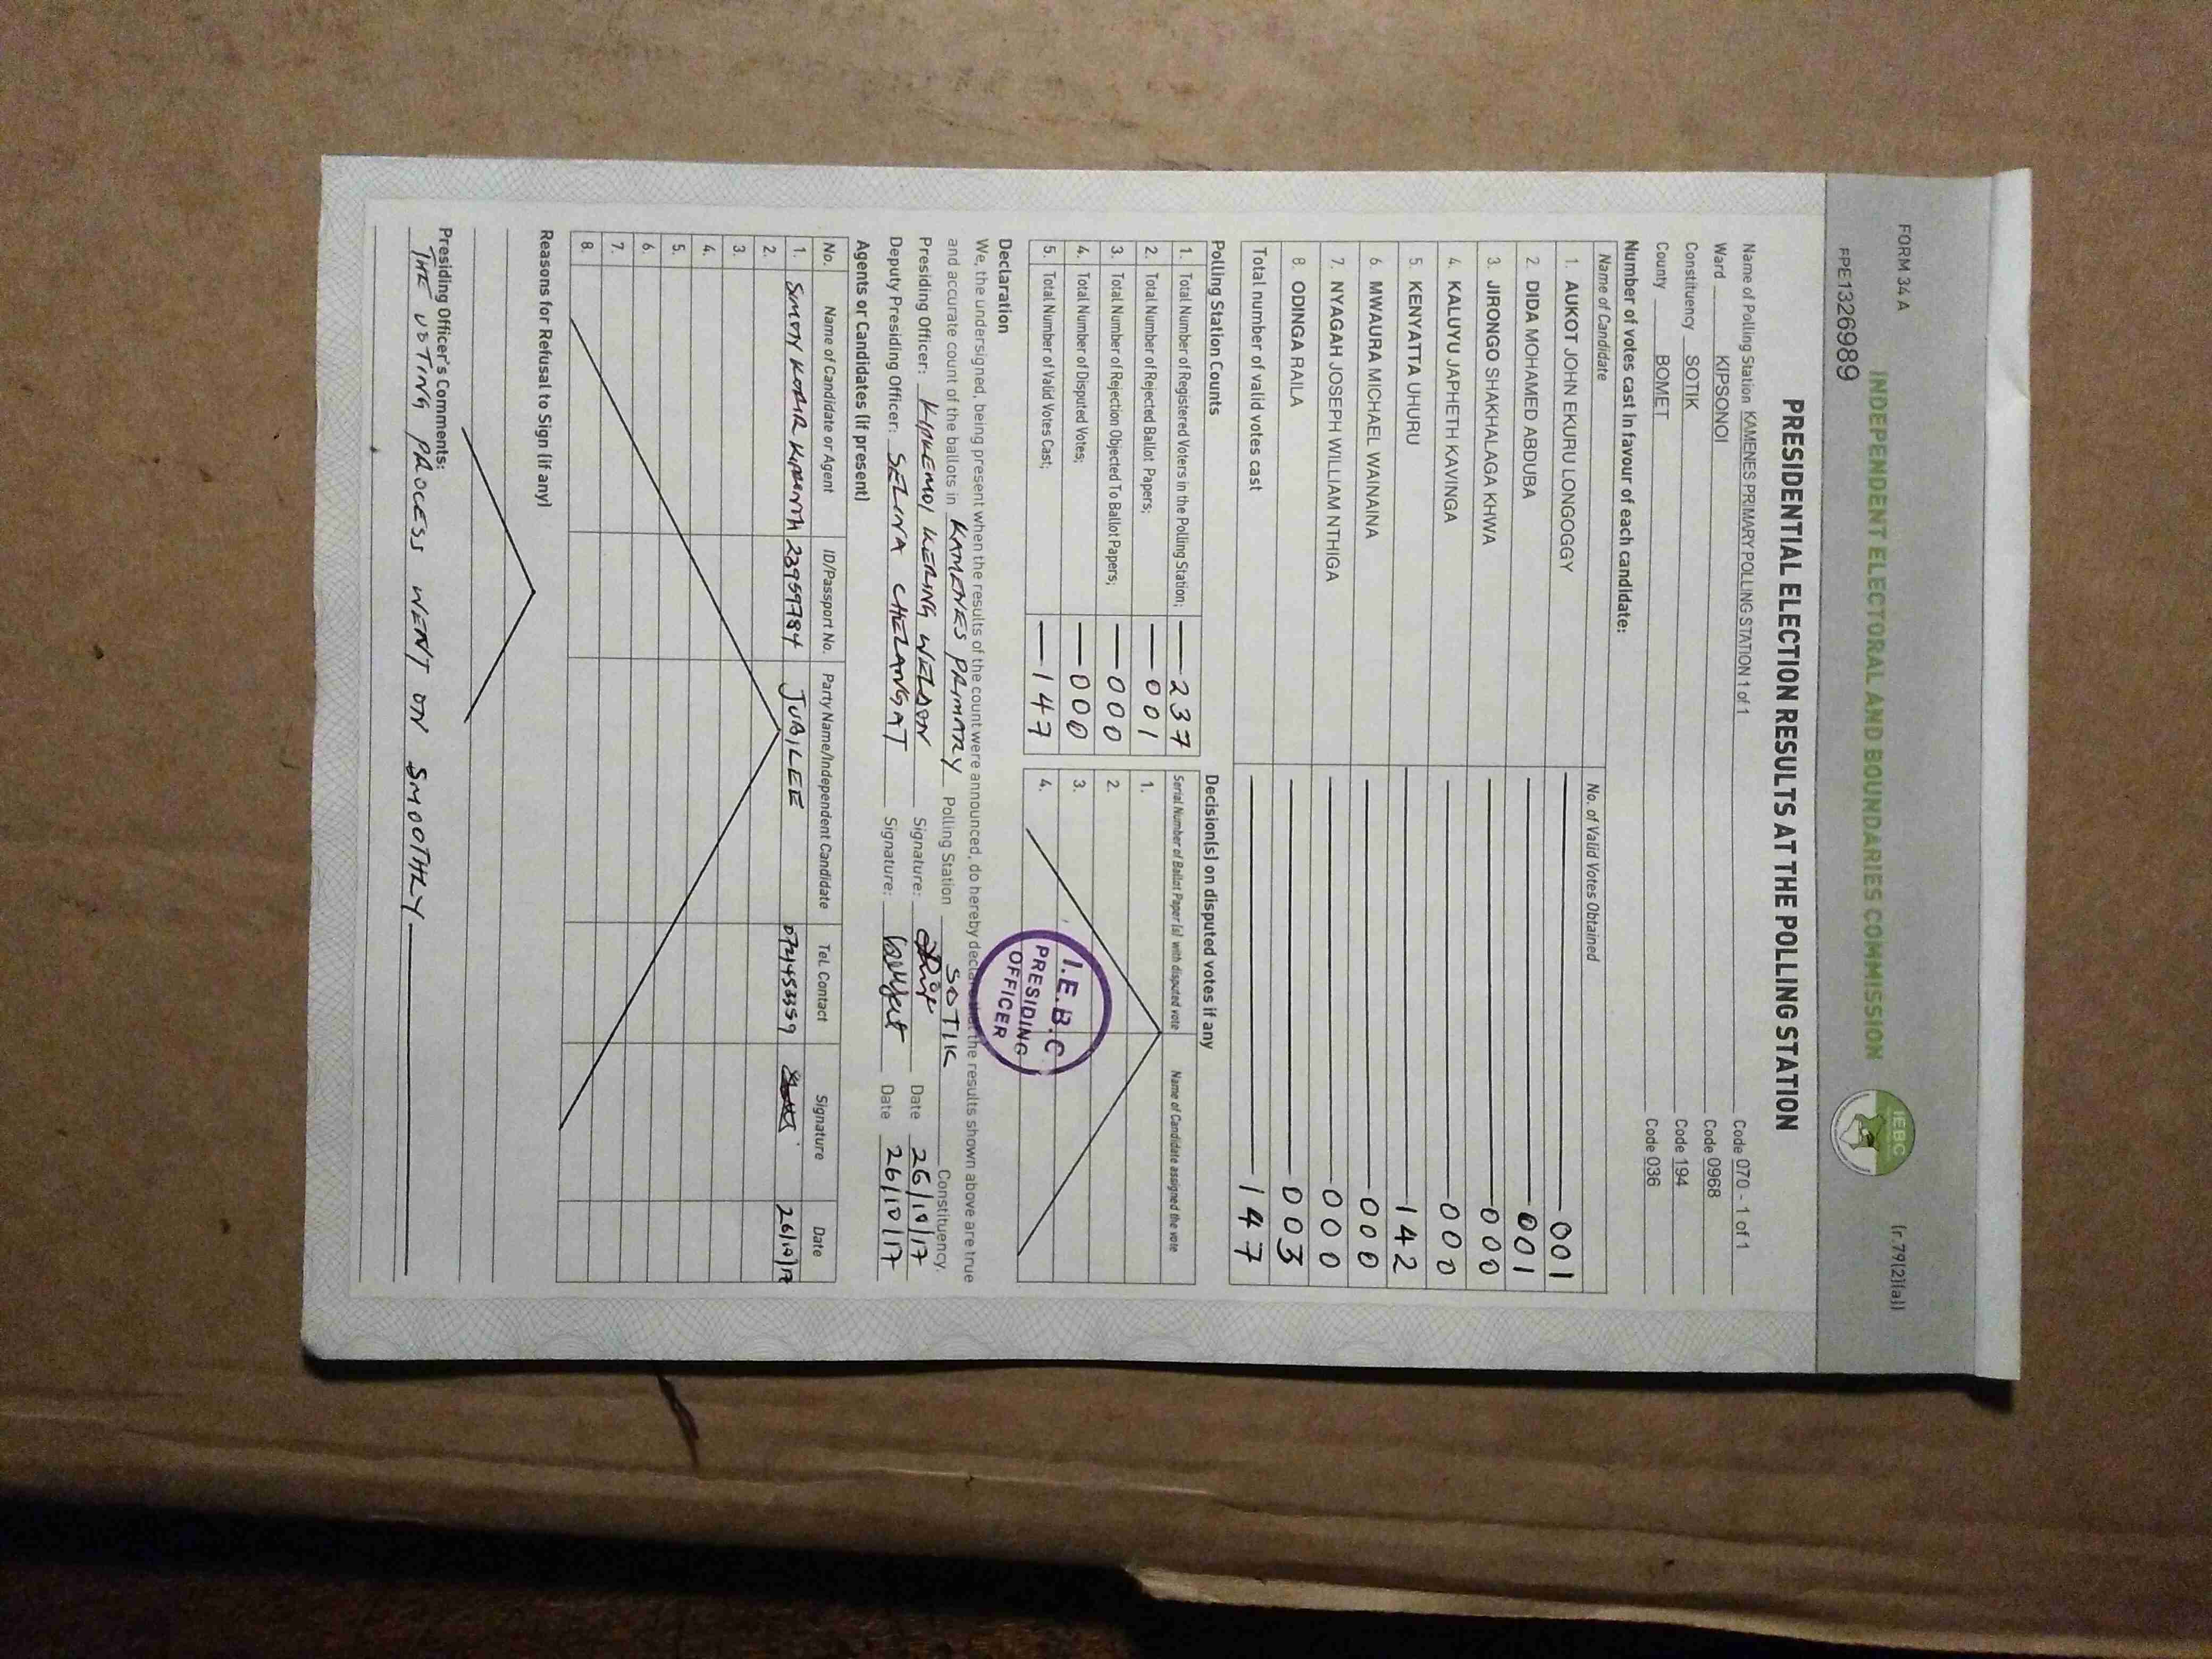 FORM 34 A
(r.79(2)(a))
INDEPENDENT ELECTORAL AND BOUNDARIES COMMISSION
IEBC
FPE1326989
PRESIDENTIAL ELECTION RESULTS AT THE POLLING STATION
Name of Polling Station KAMENES PRIMARY POLLING STATION 1 of 1 Code 070 - 1 of 1
Ward KIPSONOI Code 0968
Constituency SOTIK Code 194
County BOMET Code 036
Number of votes cast in favour of each candidate:
Name of Candidate No. of Valid Votes Obtained
1. AUKOT JOHN EKURU LONGOGGY 001
2. DIDA MOHAMED ABDUBA 001
3. JIRONGO SHAKHALAGA KHWA 000
4. KALUYU JAPHETH KAVINGA 000
5. KENYATTA UHURU 142
6. MWAURA MICHAEL WAINAINA 000
7. NYAGAH JOSEPH WILLIAM NTHIGA 000
8. ODINGA RAILA 003
Total number of valid votes cast 147
Polling Station Counts
1. Total Number of Registered Voters in the Polling Station; 237
2. Total Number of Rejected Ballot Papers; 001
3. Total Number of Rejection Objected To Ballot Papers; 000
4. Total Number of Disputed Votes; 000
5. Total Number of Valid Votes Cast; 147
Decision(s) on disputed votes if any
Serial Number of Ballot Paper (s) with disputed vote Name of Candidate assigned the vote
1.
2.
3.
4.
I.E.B.C
PRESIDING
OFFICER
Declaration
We, the undersigned, being present when the results of the count were announced, do hereby declare that the results shown above are true
and accurate count of the ballots in KAMENES PRIMARY Polling Station SOTIK Constituency.
Presiding Officer: KIPKEMOI KERING WELDON Signature: Date 26/10/17
Deputy Presiding Officer: SELINA CHELANGAT Signature: Date 26/10/17
Agents or Candidates (if present)
No. Name of Candidate or Agent ID/Passport No. Party Name/Independent Candidate Tel. Contact Signature Date
1. SIMON KORIR 23959784 JUBILEE 0721453359 26/10/17
2.
3.
4.
5.
6.
7.
8.
Reasons for Refusal to Sign (if any)
Presiding Officer's Comments:
THE VOTING PROCESS WENT ON SMOOTHLY